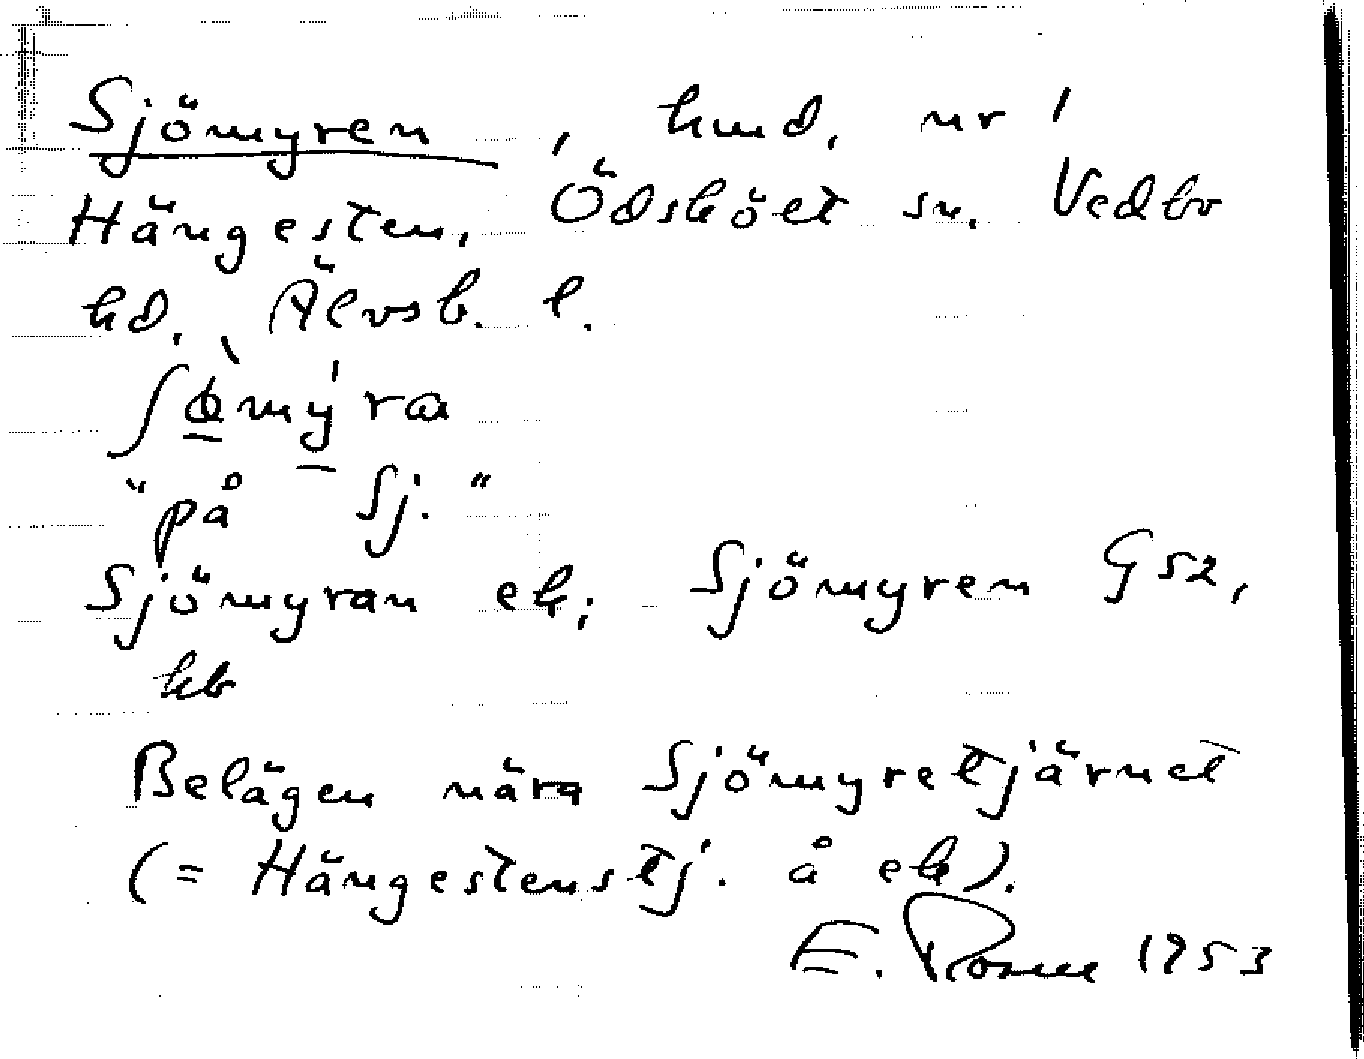 Sjömyren, hmd. nr 1
Hängesten, Ödsköet sn. Vedbo
hd. Älvsb. l.
ʃø̀mýra
"på Sj."
Sjömyran ek; Sjömyren G52,
kb
Belägen nära Sjömyretjärnet
(= Hängestenstj. å ek).
E. Rosell 1953